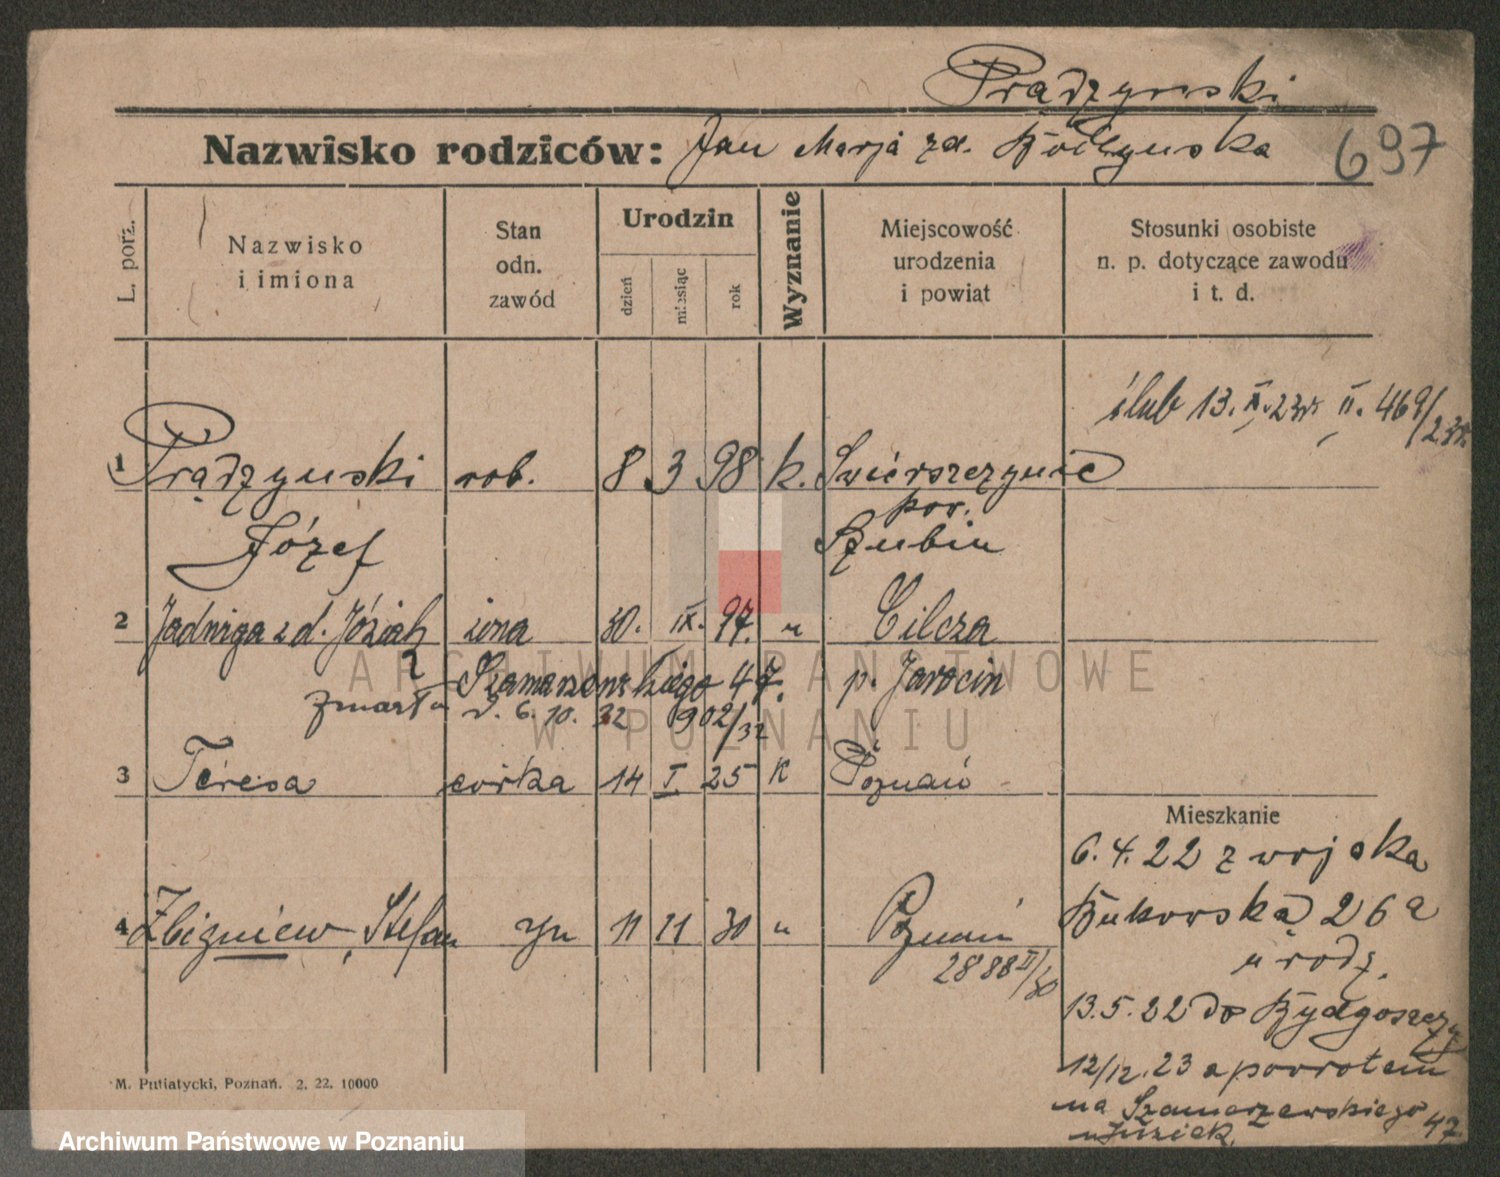 Prądzynski
Nazwisko rodziców: Jan Marja zd.
697
L. porz.
Nazwisko i imiona
Stan odn. zawód
Urodzin
dzień
miesiąc
rok
Wyznanie
Miejscowość urodzenia i powiat
Stosunki osobiste n. p. dotyczące zawodu i t. d.
ślub 13. X. 23r. II. 469/23r.
1 Prądzynski rob. 8 3 98 k.
pow.
Józef Szubin
2 Jadwiga zd. Józiak żona 30. IX. 97. " Cilcza
Szamarzewskiego 47. p. Jarocin
zmarła d. 6. 10. 32 902/32
3 Teresa córka 14 I 25 K Poznań
Mieszkanie
6. 4. 22 z wojska
4 Zbigniew, Stefan syn 11 11 30 " Poznań
2888 II/30
Bukowska 26a
urodz.
13. 5. 22 do Bydgoszczy
12/12. 23 z powrotem
na Szamarzewskiego 47
u Józiak.
M. Putiatycki, Poznań. 2. 22. 10000
ARCHIWUM PAŃSTWOWE
W POZNANIU
Archiwum Państwowe w Poznaniu